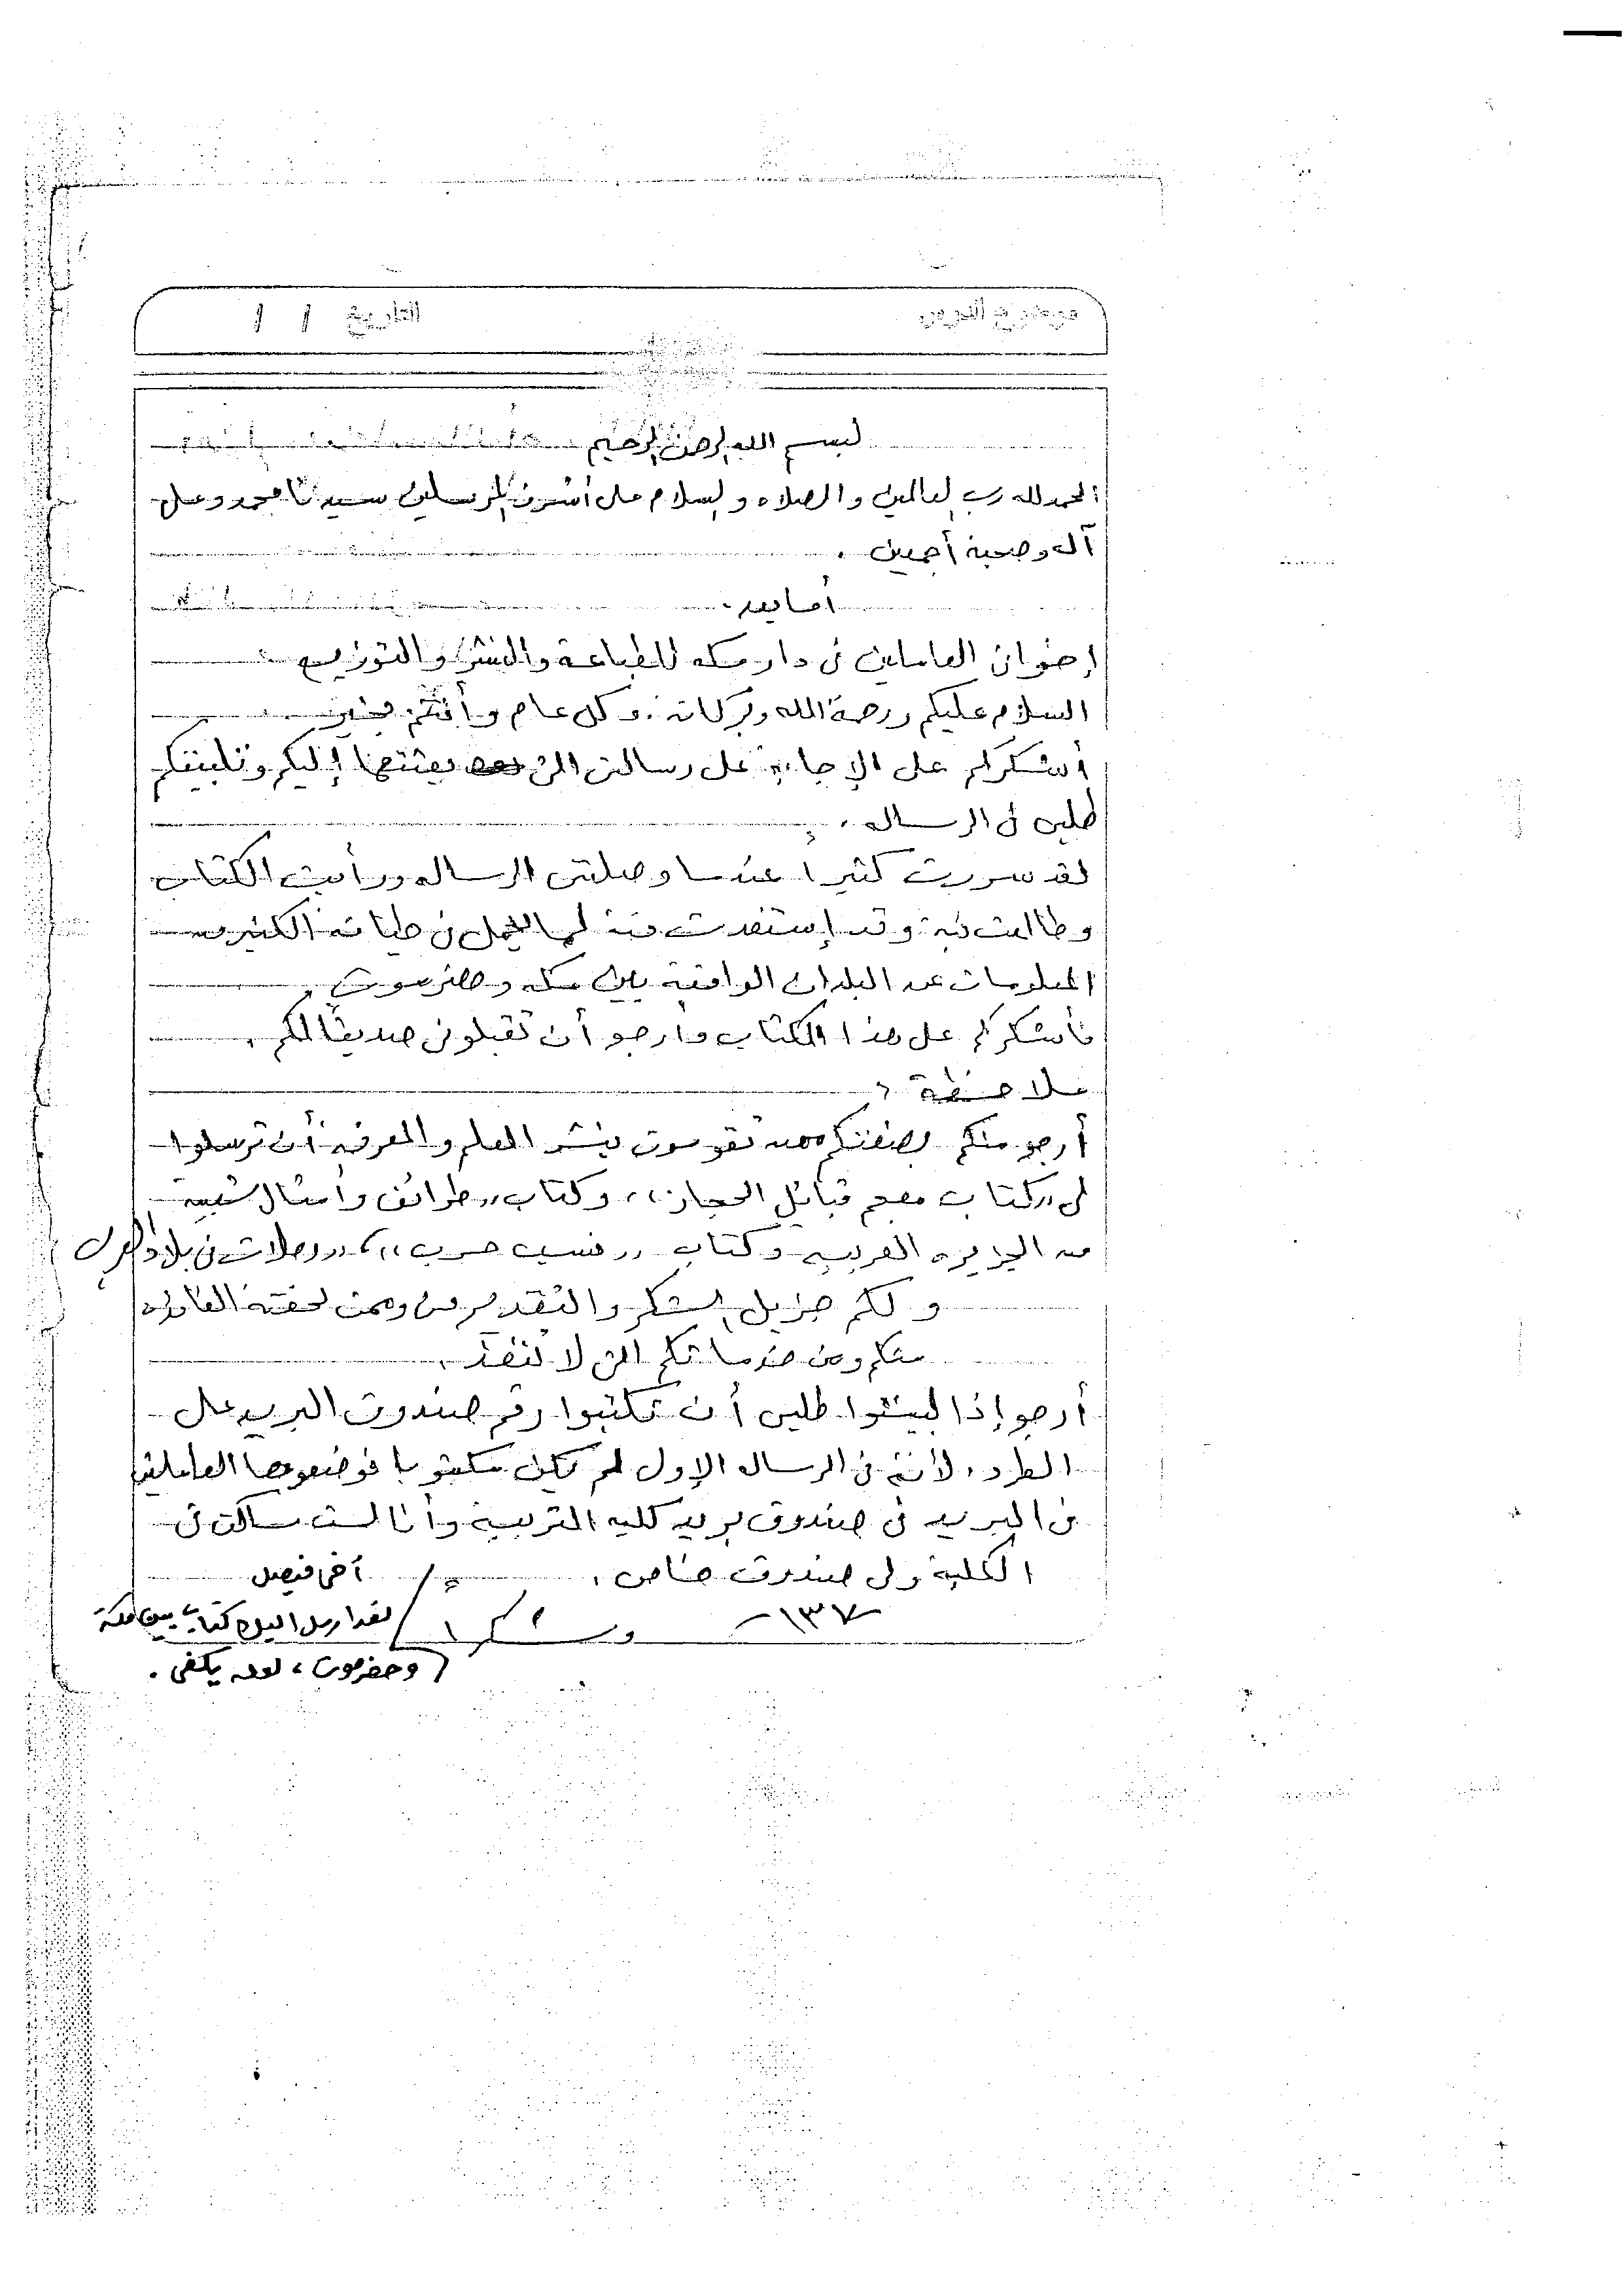 التاريخ / /
بسم الله الرحمن الرحيم
الحمد لله رب العالمين والصلاه والسلام على أشرف المرسلين سيدنا محمد وعلى
آله وصحبة أجمعين .
أما بعد .
إخوان العاملين فى دار مكه للطباعة والنشر والتوزيع :
السلام عليكم ورحمة الله وبركاته . وكل عام وأنتم بخير .
أشكركم على الإجابة على رسالتى التى بعثتها إليكم وتلبيتكم
طلبى فى الرساله .
لقد سررت كثيرا عندما وصلتنى الرساله ورأيت الكتاب
وطالعت فية وقد إستفدت منة لما يحمل فى طياتة الكثير من
المعلومات عن البلدان الواقعه بين مكه وحضرموت .
فأشكركم على هذا الكتاب وأرجو أن تقبلونى صديقًا لكم .
ملاحظة :
أرجو منكم بصفتكم ممن تقومون بنشر العلم والمعرفه أن ترسلوا
لى ,,كتاب معجم قبائل الحجاز،، وكتاب ,,طرائف وأمثال شعبية
من الجزيره العربيه وكتاب ,,نسب حرب،، ،,,رحلات فى بلاد العرب
ولكم جزيل الشكر والتقدير منى وممن لحقته الفائده
منكم ومن خدماتكم التى لا تنفذ .
أرجو إذا لبيتوا طلبى أن تكتبوا رقم صندوق البريد على
الطرد . لأنة فى الرساله الإولى لم يكن مكتوبا فوضعوها العاملين
فى البريد فى صندوق بريد كليه التربية وأنا لست ساكن فى
الكلية ولى صندوق خاص .
١٣٧
وشكرا
أخى فيصل
لقد أرسل اليك كتاب بين مكة
وحضرموت ، لعله يكفى .